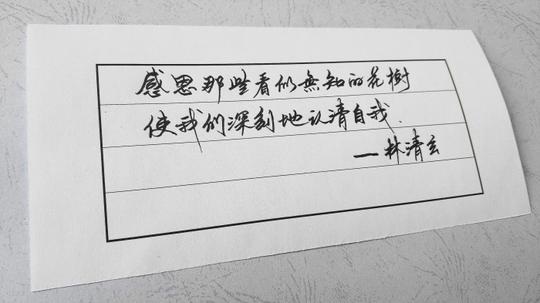 感恩那些看似無知的花樹
使我们深刻地认清自我.
—林清玄